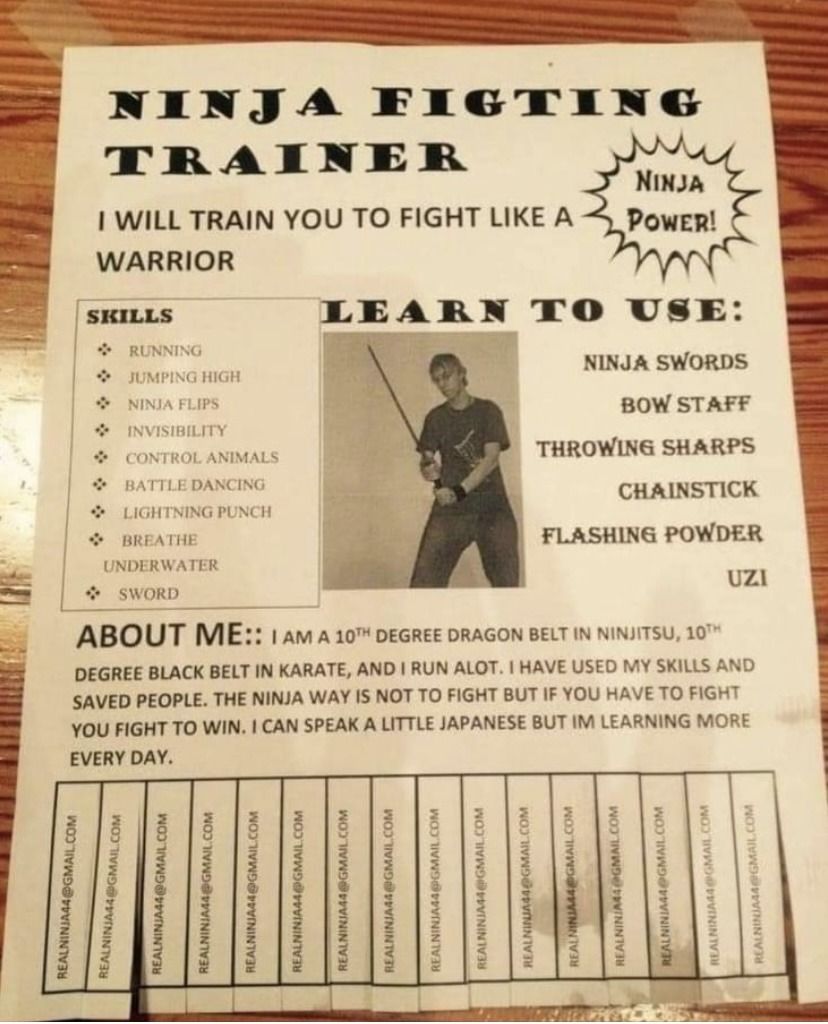 NINJA FIGTING
TRAINER
NINJA
POWER!
I WILL TRAIN YOU TO FIGHT LIKE A
WARRIOR
SKILLS
❖ RUNNING
❖ JUMPING HIGH
❖ NINJA FLIPS
❖ INVISIBILITY
❖ CONTROL ANIMALS
❖ BATTLE DANCING
❖ LIGHTNING PUNCH
❖ BREATHE
UNDERWATER
❖ SWORD
LEARN TO USE:
NINJA SWORDS
BOW STAFF
THROWING SHARPS
CHAINSTICK
FLASHING POWDER
UZI
ABOUT ME:: I AM A 10TH DEGREE DRAGON BELT IN NINJITSU, 10TH
DEGREE BLACK BELT IN KARATE, AND I RUN ALOT. I HAVE USED MY SKILLS AND
SAVED PEOPLE. THE NINJA WAY IS NOT TO FIGHT BUT IF YOU HAVE TO FIGHT
YOU FIGHT TO WIN. I CAN SPEAK A LITTLE JAPANESE BUT IM LEARNING MORE
EVERY DAY.
REALNINJA44@GMAIL.COM
REALNINJA44@GMAIL.COM
REALNINJA44@GMAIL.COM
REALNINJA44@GMAIL.COM
REALNINJA44@GMAIL.COM
REALNINJA44@GMAIL.COM
REALNINJA44@GMAIL.COM
REALNINJA44@GMAIL.COM
REALNINJA44@GMAIL.COM
REALNINJA44@GMAIL.COM
REALNINJA44@GMAIL.COM
REALNINJA44@GMAIL.COM
REALNINJA44@GMAIL.COM
REALNINJA44@GMAIL.COM
REALNINJA44@GMAIL.COM
REALNINJA44@GMAIL.COM